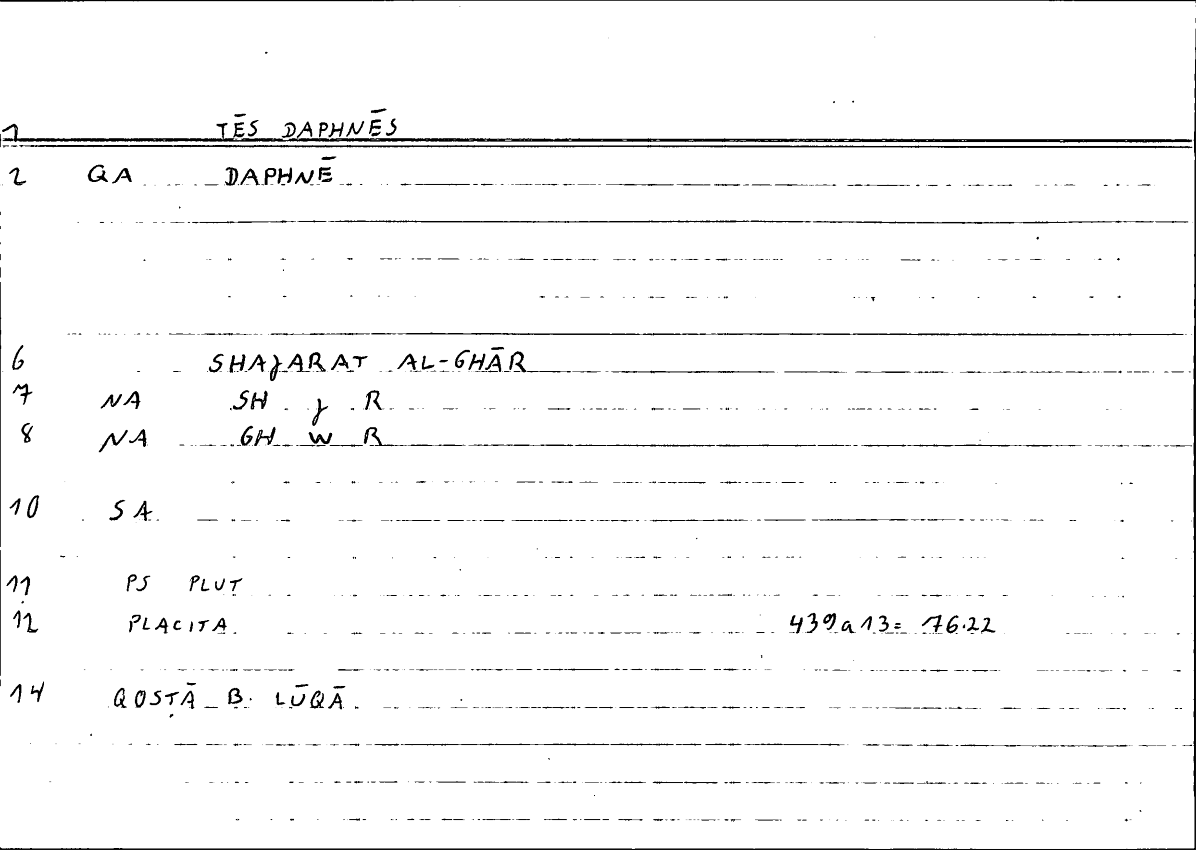 1 TĒS DAPHNĒS
2 QA DAPHNĒ
6 SHAJARAT AL-GHĀR
7 NA SH J R
8 NA GH W R
10 SA
11 PS PLUT
12 PLACITA 439a13= 76.22
14 QOSṬĀ B. LŪQĀ